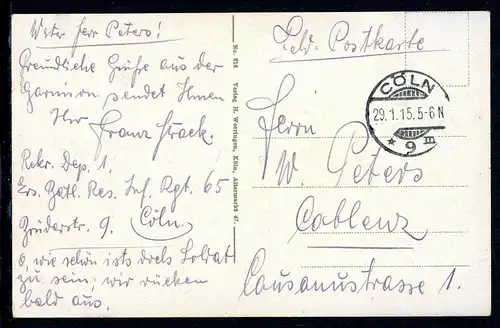 Werter Herr Peters!
Freundliche Grüße aus der
Garnison sendet Ihnen
Ihr Franz Strack.
Rekr. Dep. 1.
Ers. Batl. Res. Inf. Rgt. 65
9. Cöln.
O, wie schön ists doch Soldat
zu sein; wir rücken
bald aus.
No. 218 Verlag H. Worringen, Köln, Altermarkt 47.
Feld-Postkarte
CÖLN
29.1.15.5-6N
* 9 m
Herrn
W. Peters
Coblenz
Causanusstrasse 1.